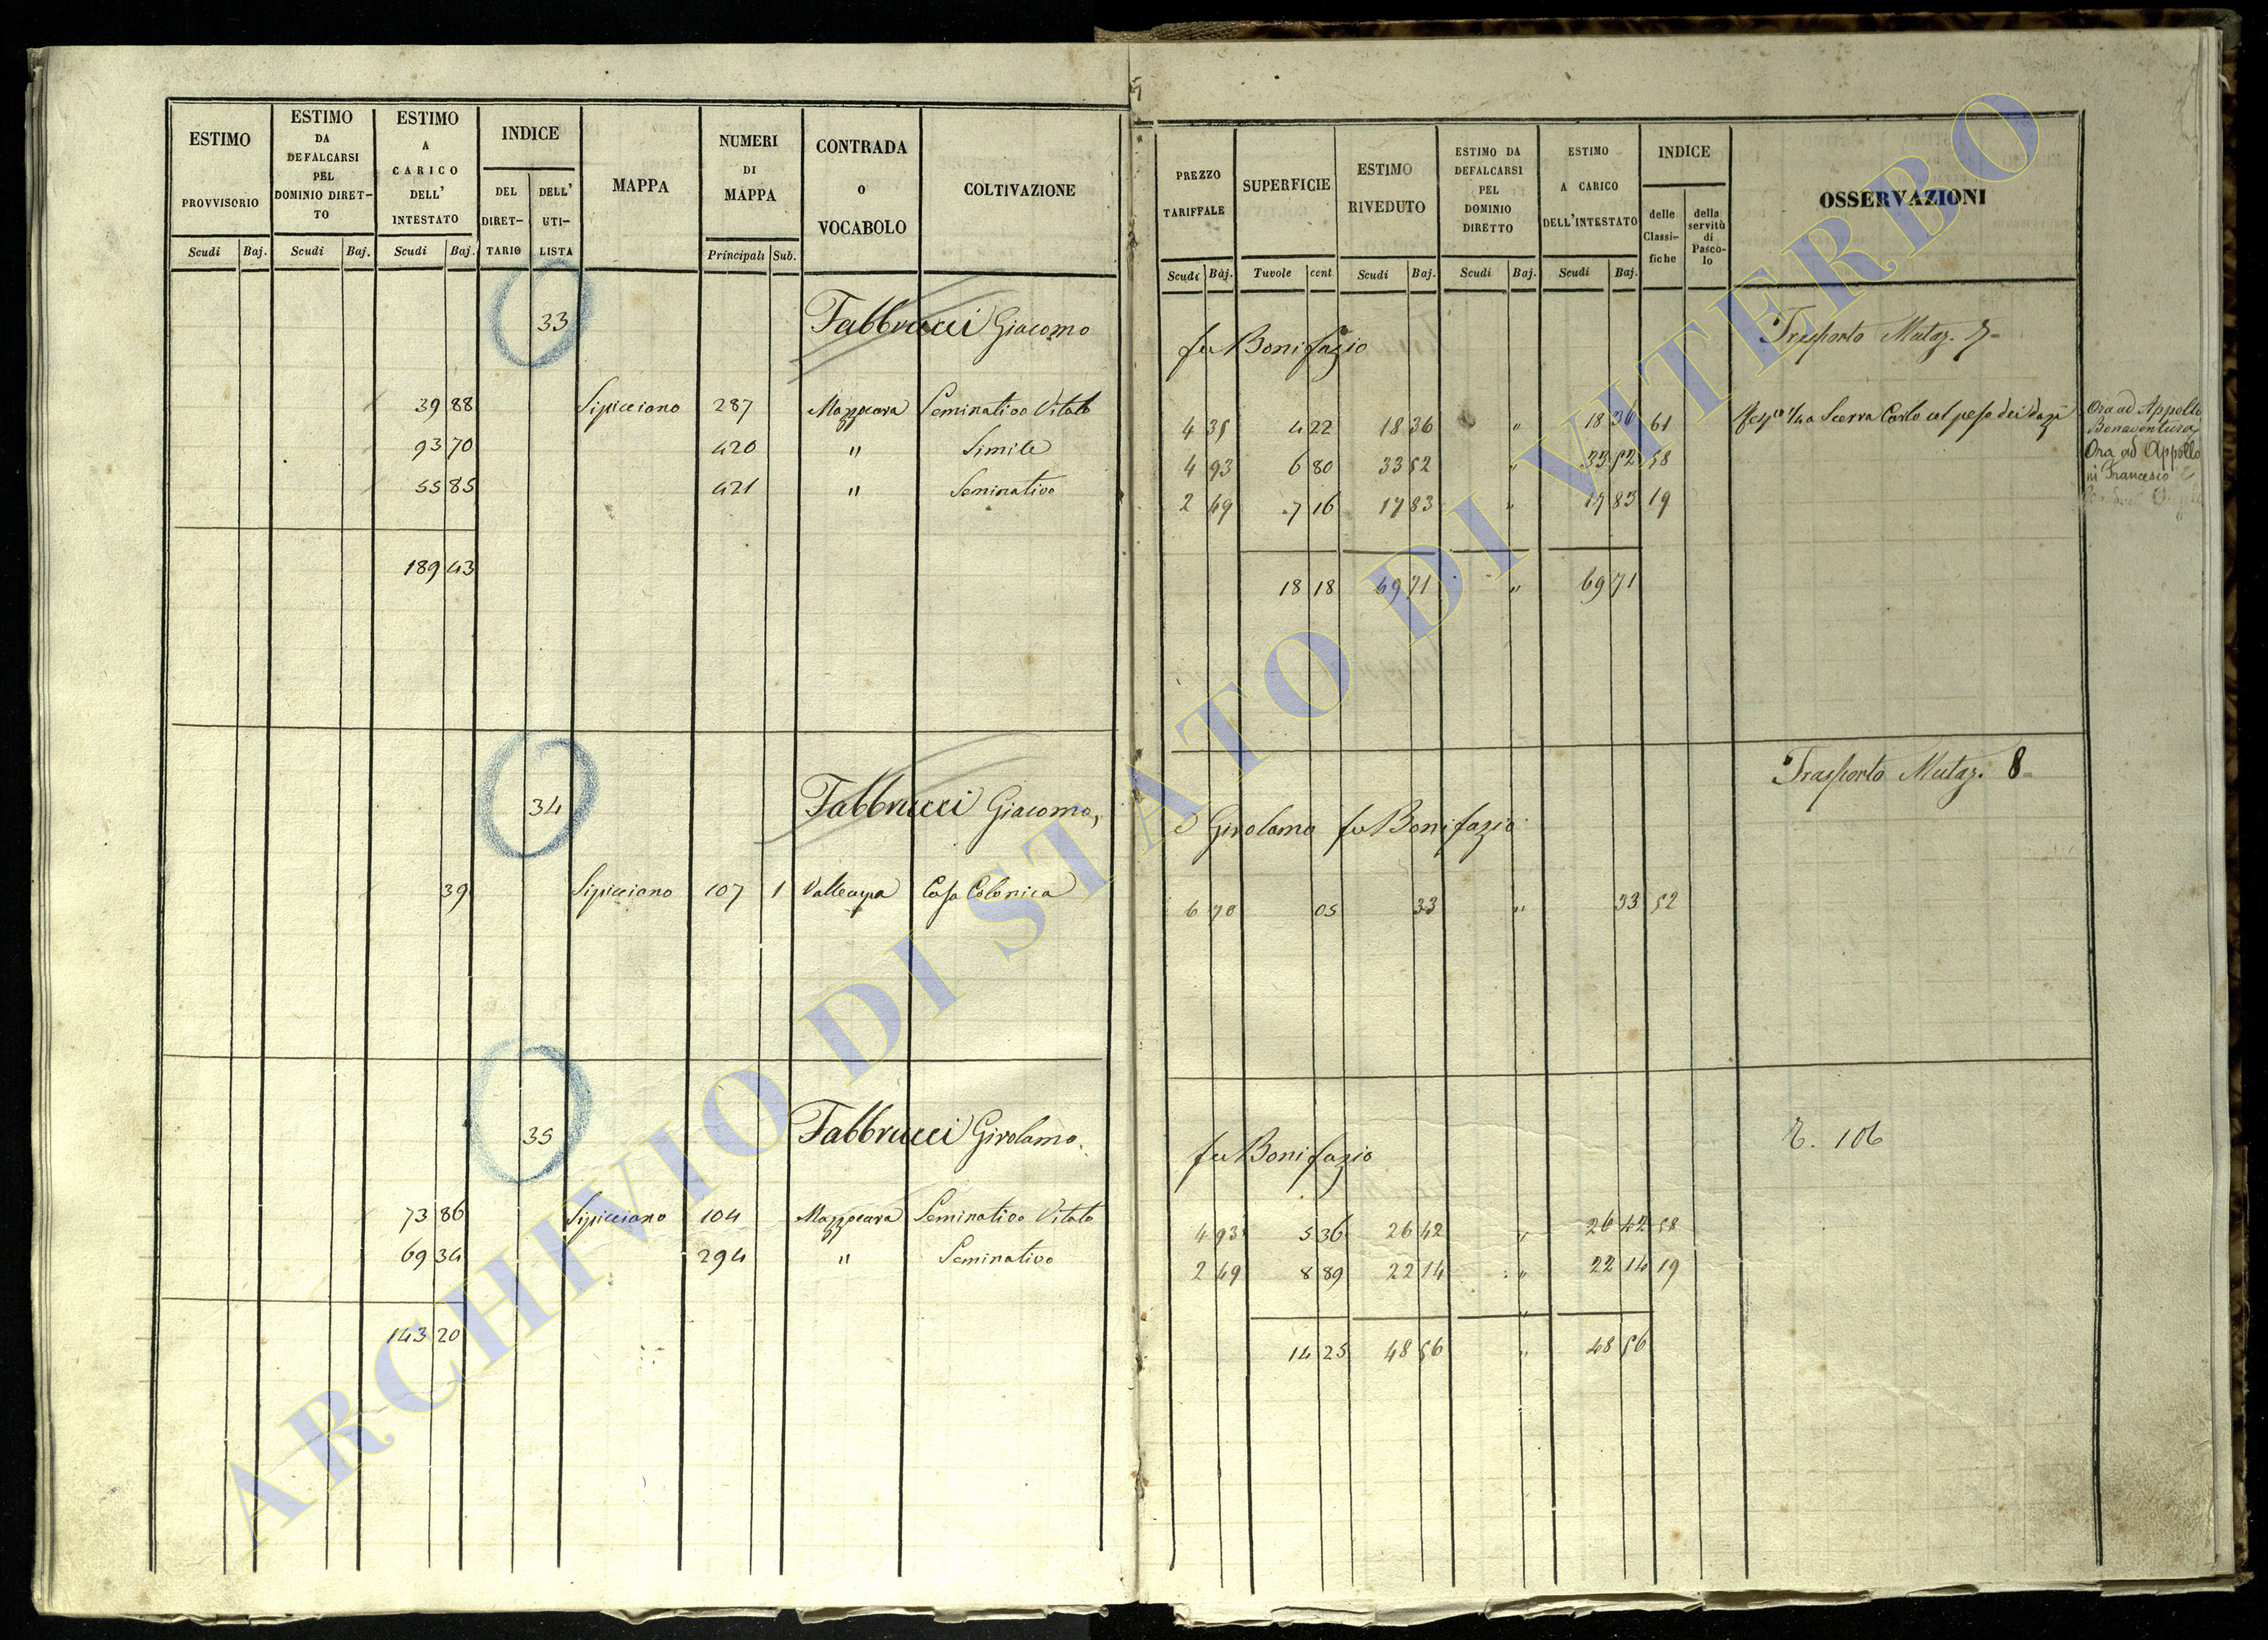 ESTIMO PROVVISORIO
ESTIMO DA DEFALCARSI PEL DOMINIO DIRETTO
ESTIMO A CARICO DELL' INTESTATO
INDICE
DEL DIRETTARIO
DELL' UTILISTA
MAPPA
NUMERI DI MAPPA
CONTRADA O VOCABOLO
COLTIVAZIONE
PREZZO TARIFFALE
SUPERFICIE
ESTIMO RIVEDUTO
ESTIMO DA DEFALCARSI PEL DOMINIO DIRETTO
ESTIMO A CARICO DELL'INTESTATO
INDICE
delle Classifiche
della servitù di Pascolo
OSSERVAZIONI
Scudi Baj. Scudi Baj. Scudi Baj. Principali Sub.
Scudi Baj. Tavole cent. Scudi Baj. Scudi Baj. Scudi Baj.
33 Fabbrucci Giacomo fu Bonifazio Trasporto Mutaz. 7
39 88 Sipicciano 287 Seminativo Vitato 4 35 4 22 18 36 " 18 36 61 a Scerra Carlo col peso dei dazi
Ora ad Appollo
Bonaventura
93 70 420 " Simile 4 93 6 80 33 52 " 33 52 58
Ora ad Appollo
ni Francesco
55 85 421 " Seminativo 2 49 7 16 17 83 " 17 83 19
189 43 18 18 69 71 " 69 71
34 Fabbrucci Giacomo, e Girolamo fu Bonifazio Trasporto Mutaz. 8
39 Sipicciano 107 1 Casa Colonica 6 70 05 33 " 33 52
35 Fabbrucci Girolamo fu Bonifazio 106
73 86 Sipicciano 104 Seminativo Vitato 4 93 5 36 26 42 " 26 42 58
69 34 294 " Seminativo 2 49 8 89 22 14 " 22 14 19
143 20 14 25 48 56 " 48 56
ARCHIVIO DI STATO DI VITERBO